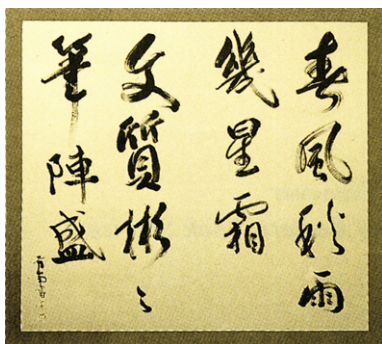 春風秋雨
幾星霜
文質彬〻
筆陣盛